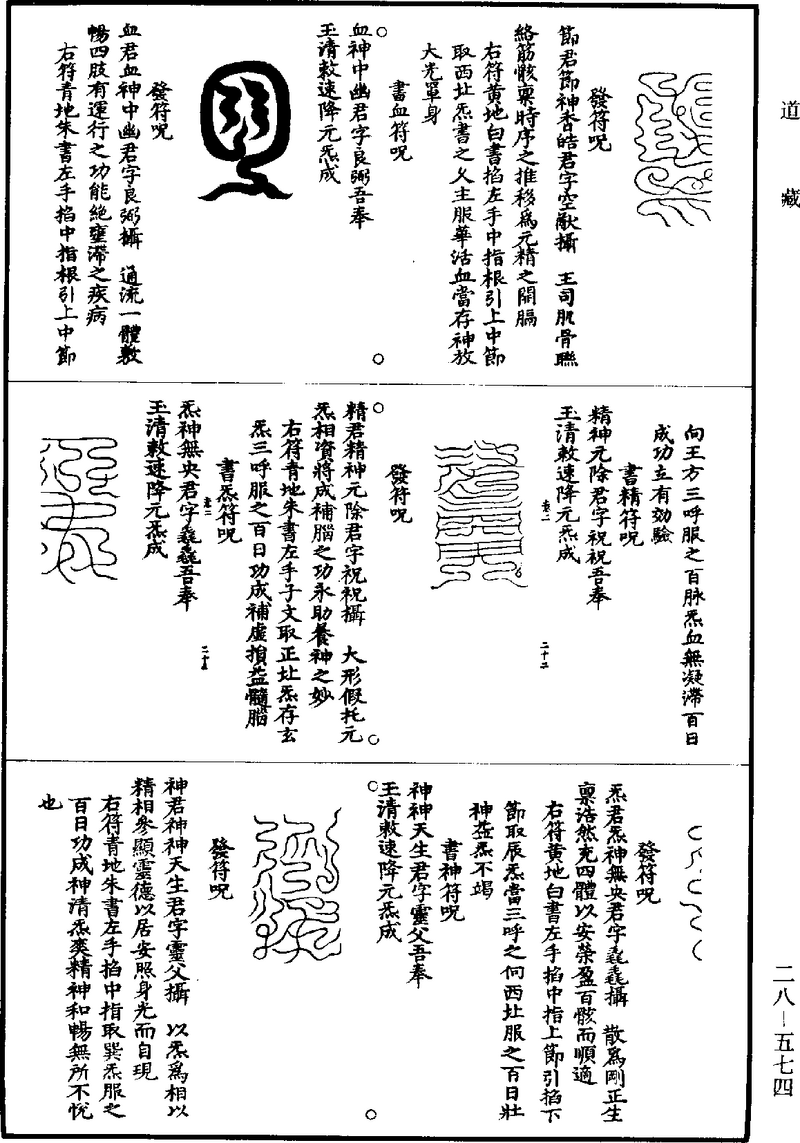 道藏
發符呪
節君節神杳皓君字空㪇攝　王司肌骨聯
絡筋骸稟時序之推移爲元精之開膈
右符黃地白書掐左手中指根引上中節
取西北炁書之父主服華活血當存神放
大光單身
書血符呪
血神中幽君字良弼吾奉
玉清敕速降元炁成
發符呪
血君血神中幽君字良弼攝　通流一體敷
暢四肢有運行之功能絕壅滯之疾病
右符青地朱書左手掐中指根引上中節
向王方三呼服之百脉炁血無凝滯百日
成功立有効驗
書精符呪
精神元除君字祝祝吾奉
玉清敕速降元炁成
卷二
二十二
發符呪
精君精神元除君字祝祝攝　大形假托元
炁相資將成補腦之功永助養神之妙
右符青地朱書左手子文取正北炁存玄
炁三呼服之百日功成補虛損益髓腦
書炁符呪
卷二
二十三
炁神無央君字毳毳吾奉
玉清敕速降元炁成
發符呪
炁君炁神無央君字毳毳攝　散爲剛正生
稟浩然充四體以安榮盈百骸而順適
右符黃地白書左手掐中指上節引掐下
節取辰炁當三呼之向西北服之百日壯
神益炁不竭
書神符呪
神神天生君字靈父吾奉
玉清敕速降元炁成
發符呪
神君神神天生君字靈父攝　以炁爲相以
精相參顯靈德以居安照身光而自現
右符青地朱書左手掐中指取巽炁服之
百日功成神清炁爽精神和暢無所不悅
也
二八—五七四